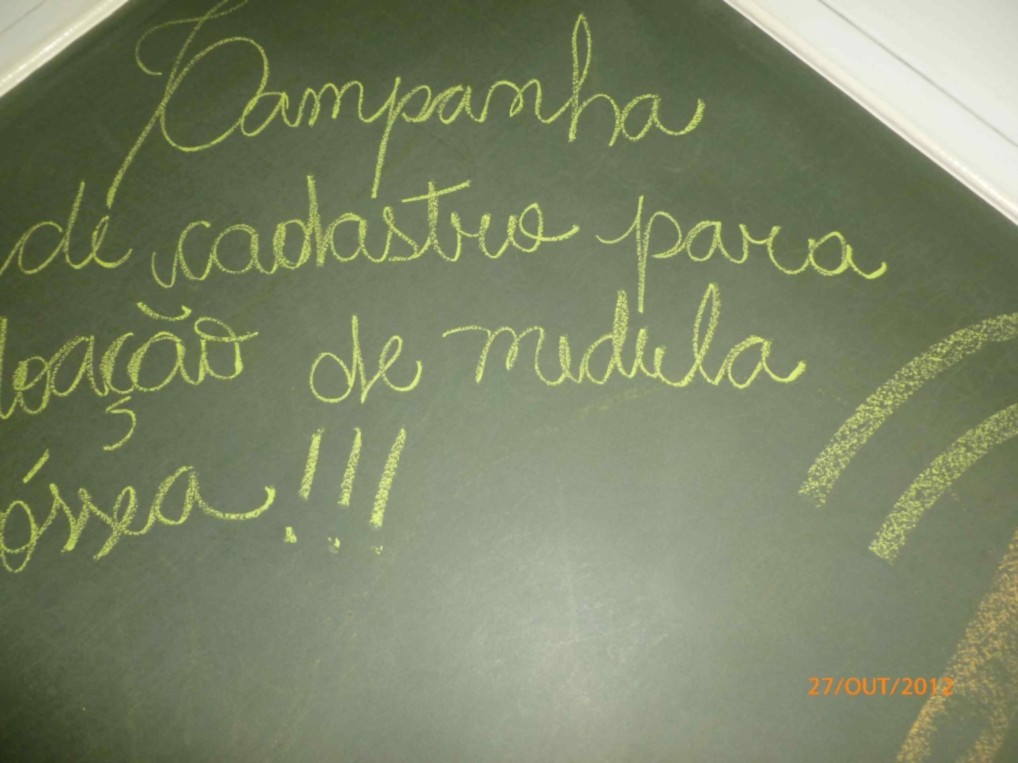 Campanha
de cadastro para
doação de medula
óssea!!!
27/OUT/2012